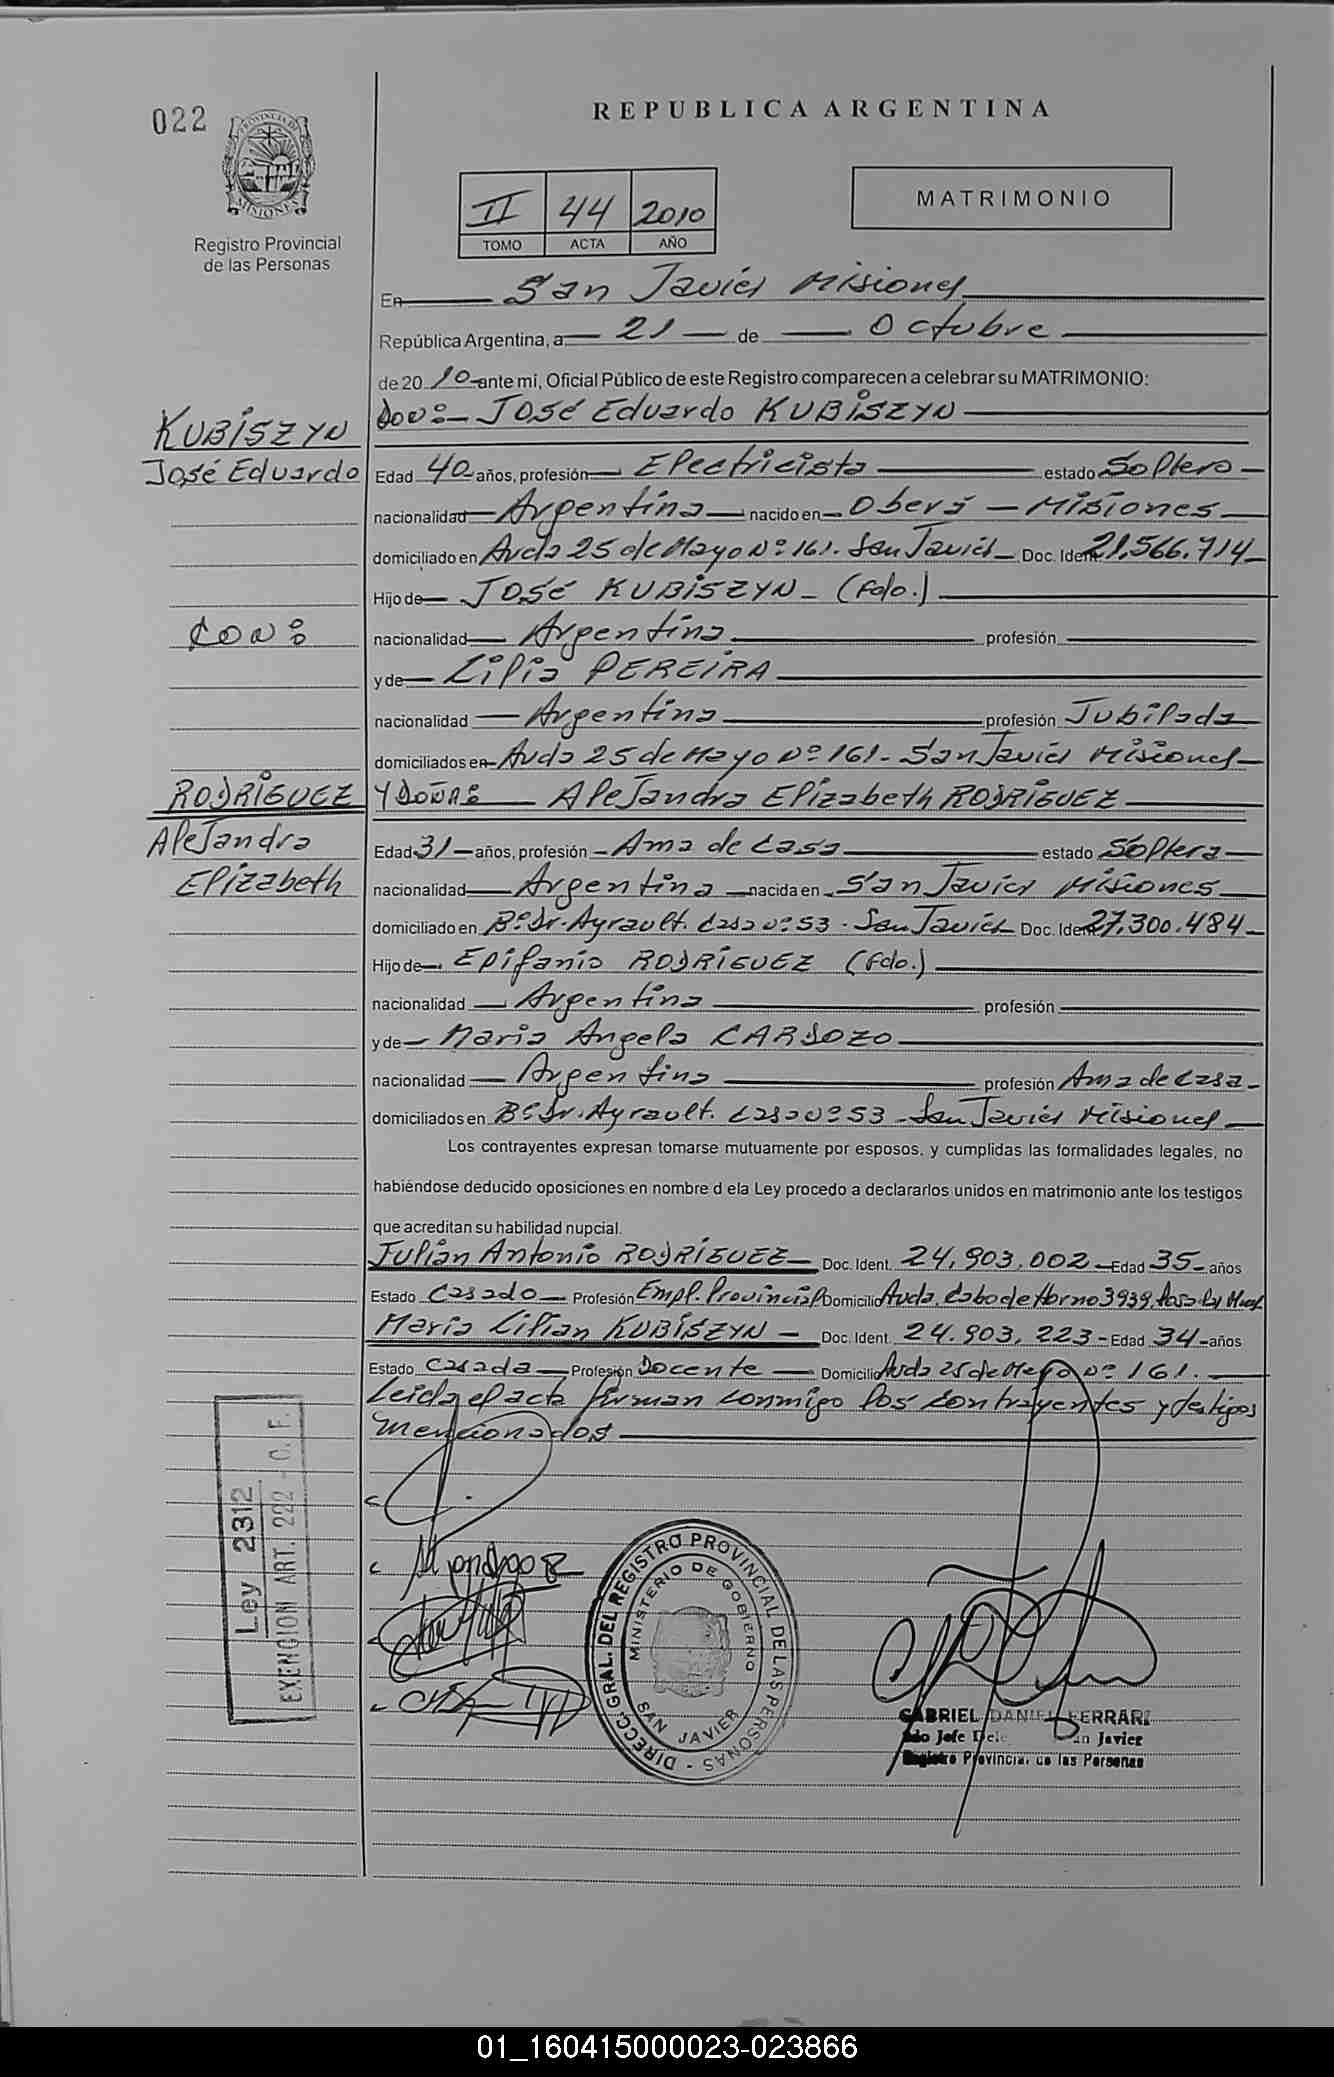 022
PROVINCIA DE
MISIONES
Registro Provincial
de las Personas
REPUBLICA ARGENTINA
II 44 2010
TOMO ACTA AÑO
MATRIMONIO
En San Javier Misiones
República Argentina, a 21 de Octubre
de 2010 ante mi, Oficial Público de este Registro comparecen a celebrar su MATRIMONIO:
KUBISZYN
José Eduardo
CON:
RODRIGUEZ
Alejandra
Elizabeth
DON:- JOSÉ Eduardo KUBISZYN
Edad 40 años, profesión Electricista estado Soltero
nacionalidad Argentina nacido en Oberá - Misiones
domiciliado en Avda 25 de Mayo Nº 161. San Javier Doc. Ident. 21.566.714
Hijo de JOSÉ KUBISZYN - (Fdo.)
nacionalidad Argentina profesión
y de Lilia PEREIRA
nacionalidad Argentina profesión Jubilada
domiciliados en Avda 25 de Mayo Nº 161 - San Javier Misiones
Y DOÑA: Alejandra Elizabeth RODRIGUEZ
Edad 31 años, profesión Ama de Casa estado Soltera
nacionalidad Argentina nacida en San Javier Misiones
domiciliado en Bº Dr. Ayrault. Casa Nº 53 - San Javier Doc. Ident. 27.300.484
Hijo de Epifanio RODRIGUEZ (Fdo.)
nacionalidad Argentina profesión
y de Maria Angela CARDOZO
nacionalidad Argentina profesión Ama de Casa
domiciliados en Bº Dr. Ayrault. Casa Nº 53 - San Javier Misiones
Los contrayentes expresan tomarse mutuamente por esposos, y cumplidas las formalidades legales, no
habiéndose deducido oposiciones en nombre d ela Ley procedo a declararlos unidos en matrimonio ante los testigos
que acreditan su habilidad nupcial.
Julián Antonio RODRIGUEZ Doc. Ident. 24.903.002 Edad 35 años
Estado Casado Profesión Empl. Provincial Domicilio Avda. Cabo de Horno 3939
Maria Lilian KUBISZYN - Doc. Ident. 24.903.223 - Edad 34 años
Estado Casada Profesión Docente Domicilio Avda 25 de Mayo Nº 161.
Leida el acta firman conmigo los contrayentes y testigos
mencionados
Ley 2312
EXENCION ART. 222 - C. F.
DIRECC. GRAL. DEL REGISTRO PROVINCIAL DE LAS PERSONAS -
MINISTERIO DE GOBIERNO
SAN JAVIER
GABRIEL DANIEL FERRARI
Jefe San Javier
Registro Provincial de las Personas
01_160415000023-023866